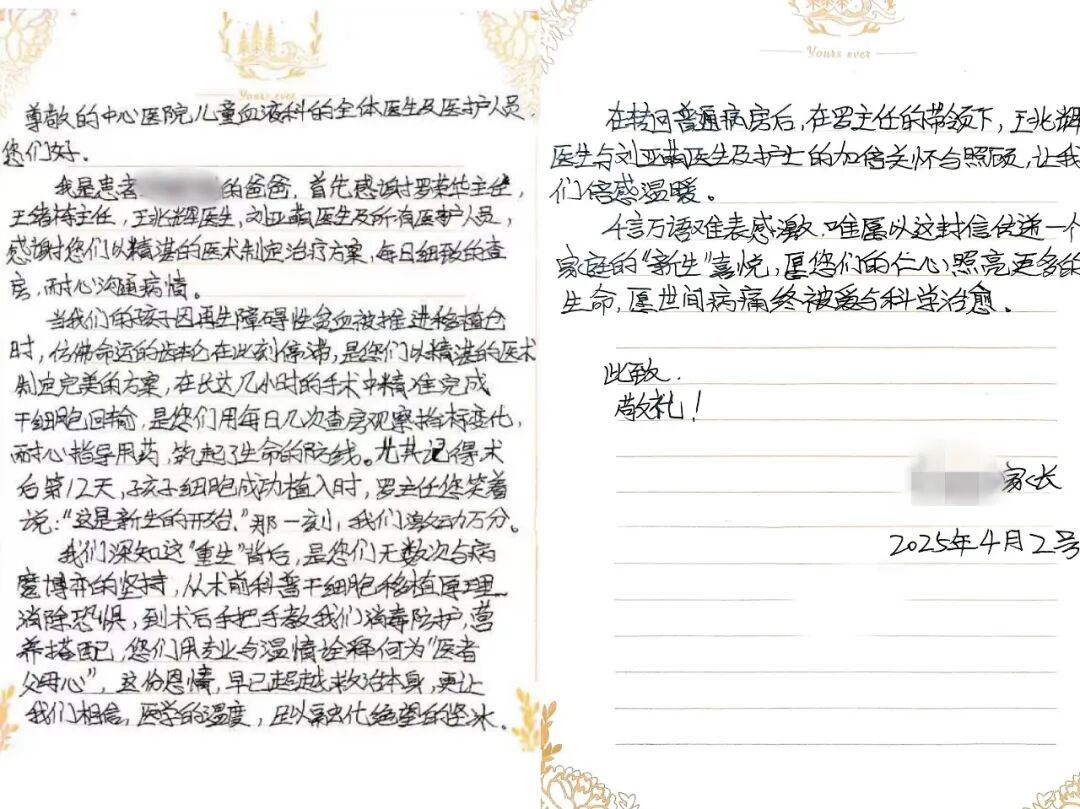 Yours ever
尊敬的中心医院儿童血液科的全体医生及医护人员
您们好。
我是患者的爸爸,首先感谢罗荣华主任,
王绪栋主任,王兆辉医生,刘亚萌医生及所有医护人员,
感谢您们以精湛的医术制定治疗方案,每日细致的查
房,耐心沟通病情。
当我们的孩子因再生障碍性贫血被推进移植仓
时,仿佛命运的齿轮在此刻停滞,是您们以精湛的医术
制定完美的方案,在长达几小时的手术中精准完成
干细胞回输,是您们用每日几次查房观察指标变化,
耐心指导用药,筑起了生命的防线。尤其记得术
后第12天,孩子细胞成功植入时,罗主任您笑着
说:“这是新生的开始.”那一刻,我们激动万分。
我们深知这“重生”背后,是您们无数次与病
魔博弈的坚持,从术前科普干细胞移植原理
消除恐惧,到术后手把手教我们消毒防护,营
养搭配,您们用专业与温情诠释何为“医者
父母心”,这份恩情,早已超越救治本身,更让
我们相信,医学的温度,足以融化绝望的坚冰.
Yours ever
在转回普通病房后,在罗主任的带领下,王兆辉
医生与刘亚萌医生及护士的加倍关怀与照顾,让我
们倍感温暖。
千言万语难表感激.唯愿以这封信传递一个
家庭的“新生”喜悦,愿您们的仁心照亮更多的
生命,愿世间病痛终被爱与科学治愈。
此致.
敬礼!
家长
2025年4月2号